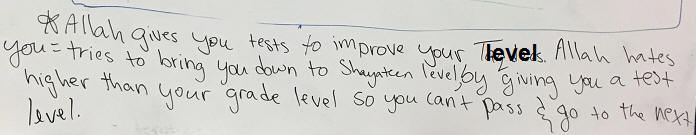 * Allah gives you tests to improve your level. Allah hates
you = tries to bring you down to Shayateen level, by giving you a test
higher than your grade level so you can't pass & go to the next
level.